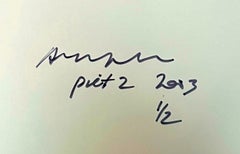 piet 2 2013
1/2